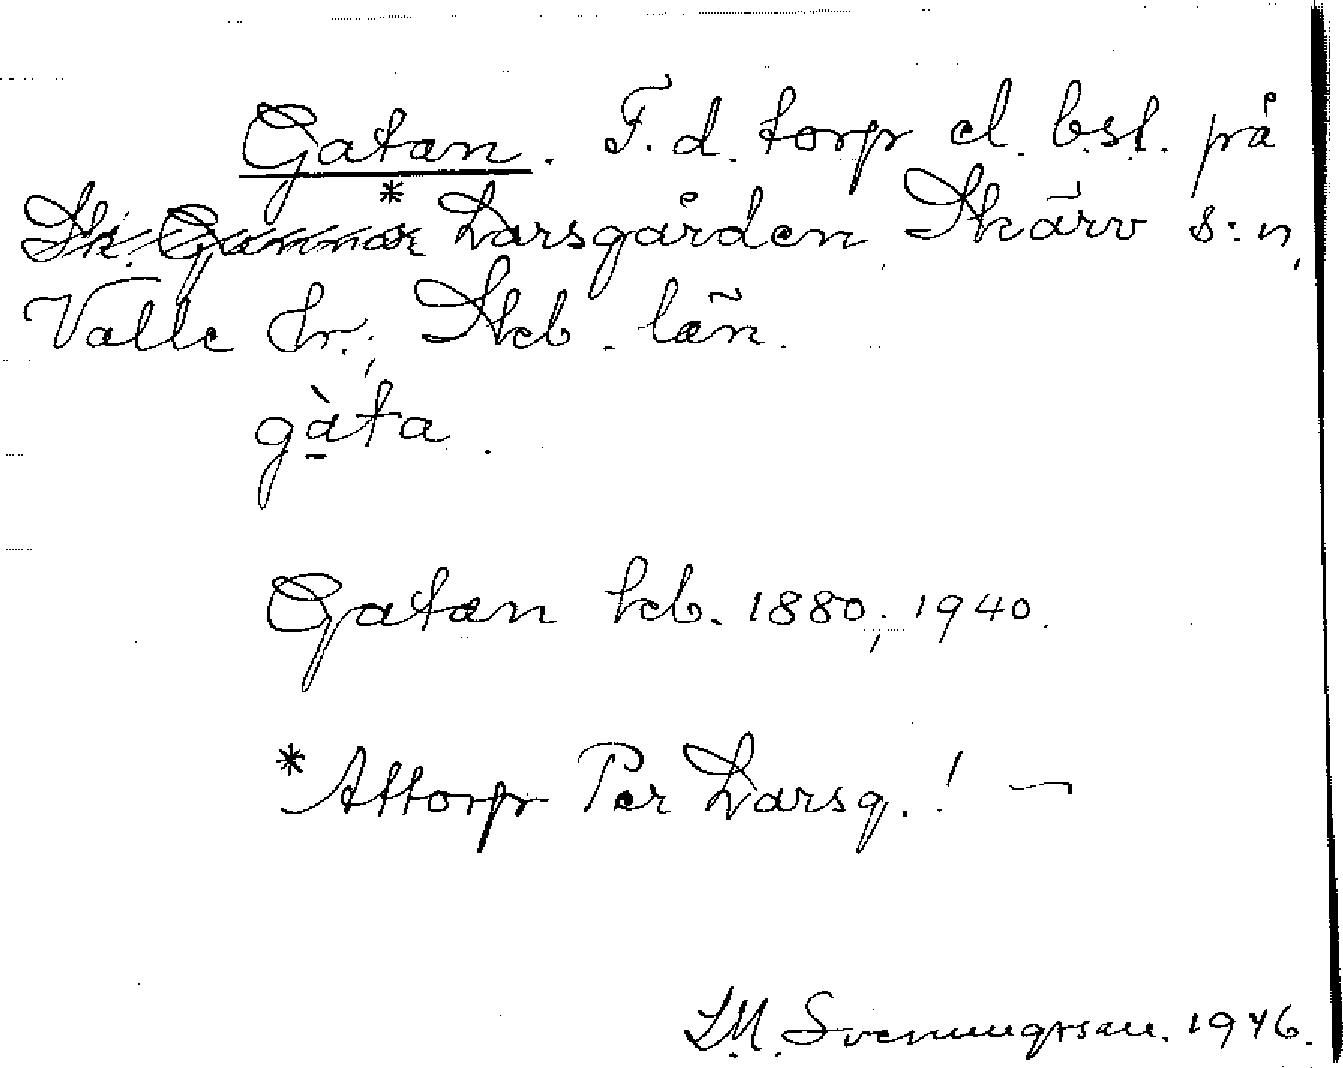 Gatan. F.d. torp el. bsl. på
* Larsgården Skärv s:n,
Valle hr.; Skb. län.
gàta.
Gatan kb. 1880; 1940.
*Attorp Per Larsg.! —
S.M. Svenungsson. 1946.